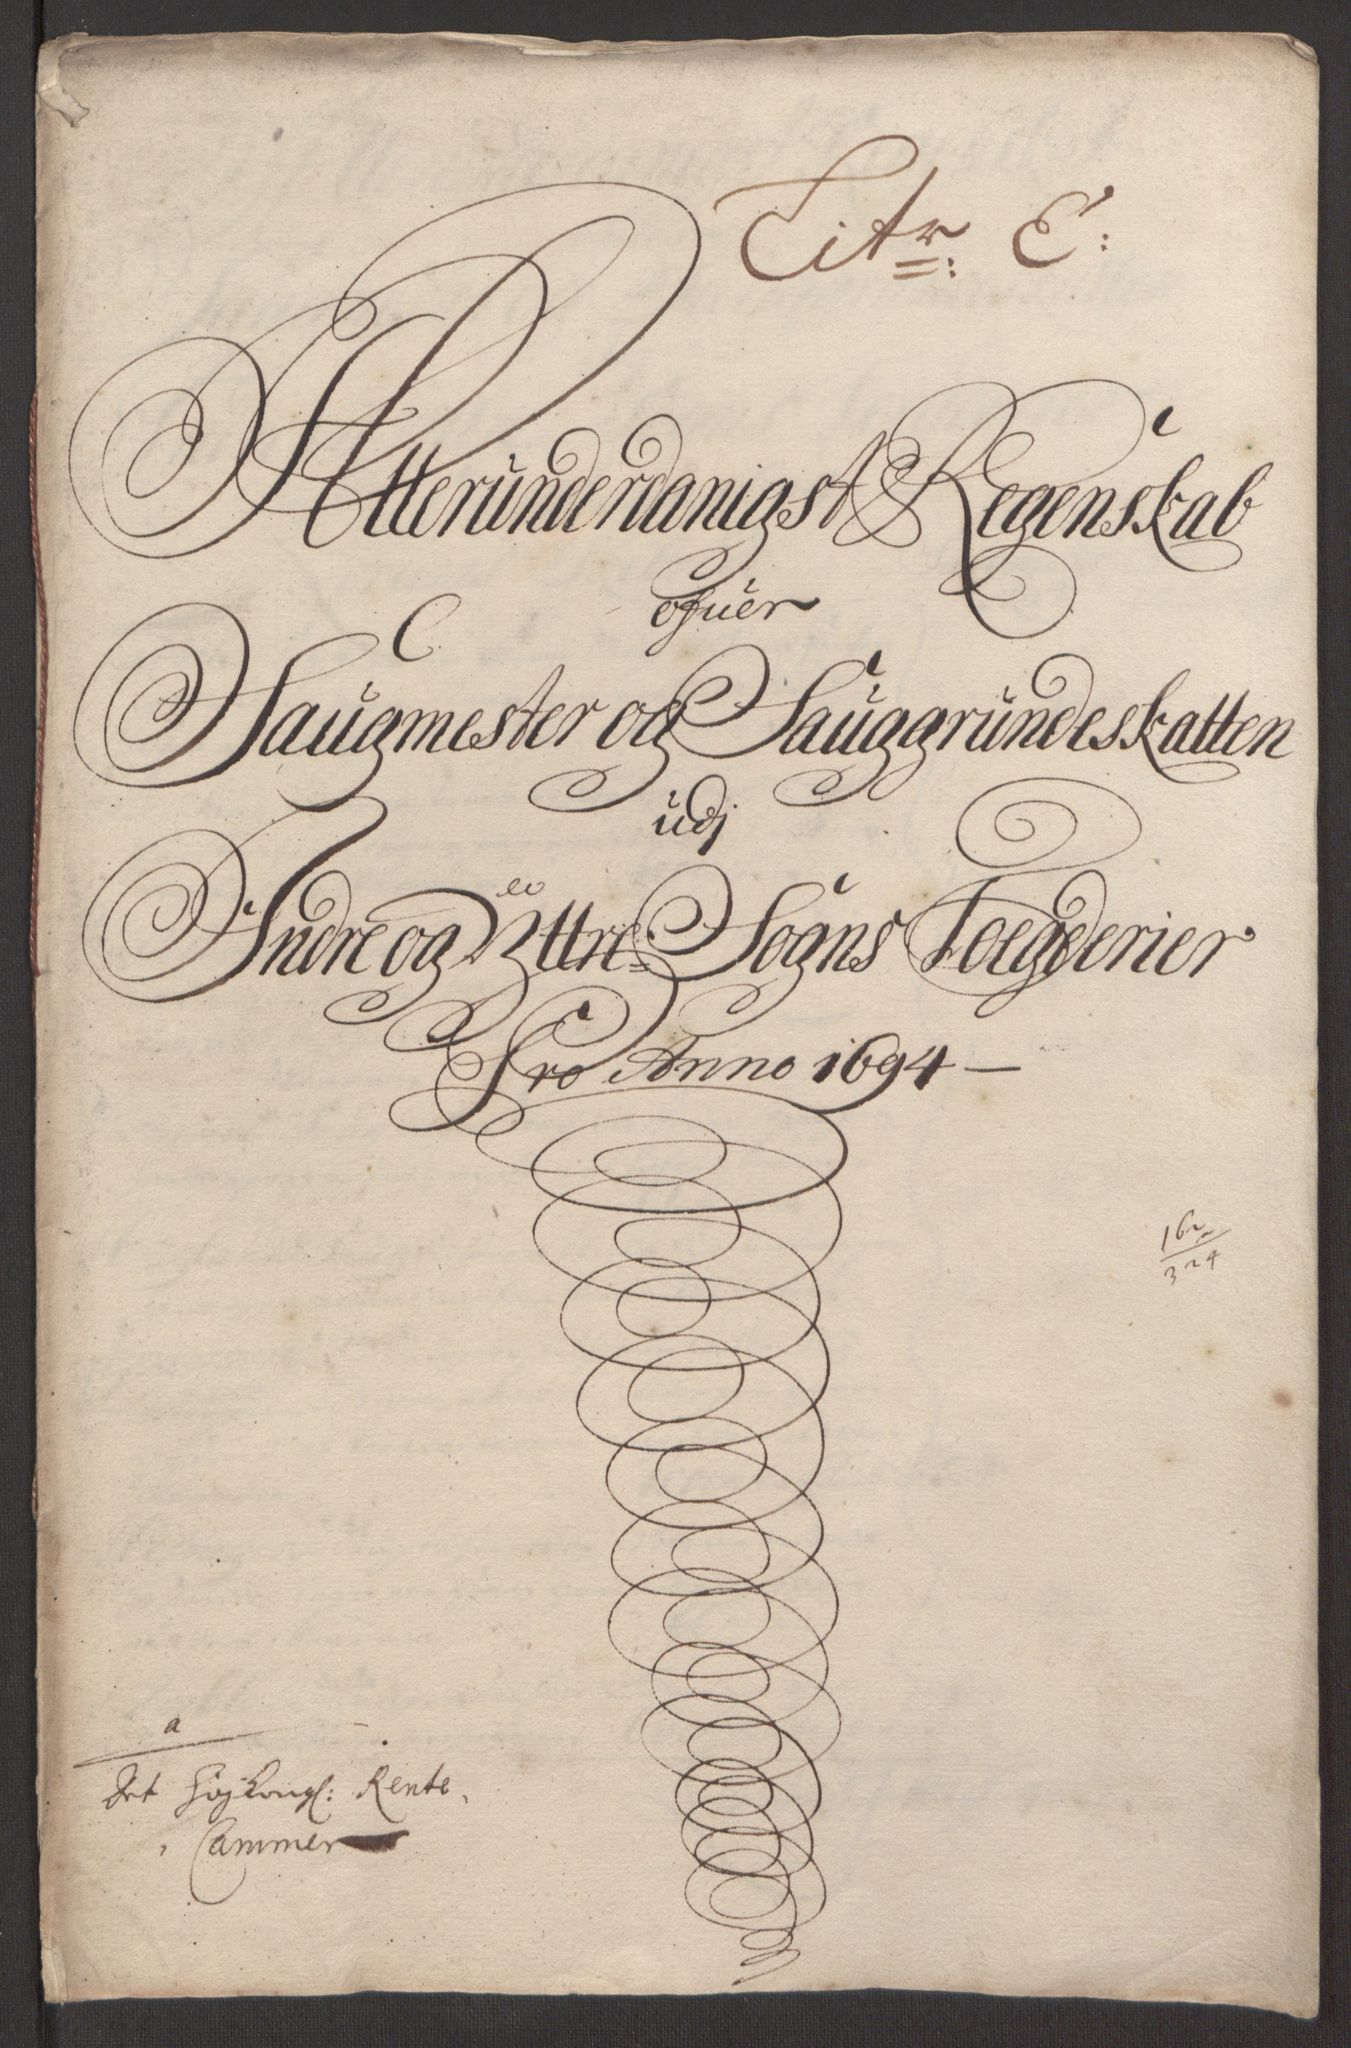 Litr: E:
Alleründerdanigst Regenskab
ofuer
Saugmester og Sauggründeskatten
udj
Indre og Ÿttre Sogns Foegderier
Pro Anno 1694
162
324
a
Det Høÿ Kongl: Rente
Cammer